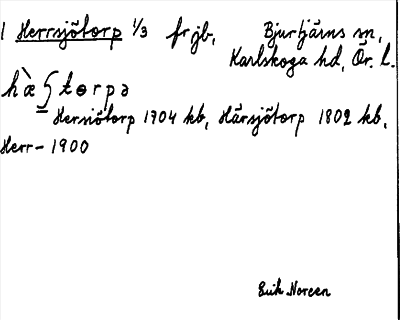 1 Herrsjötorp 1/3 fr jb, Bjurtjärns sn,
Karlskoga hd, Ör. l.
hæ̀ʃtɵrpə
Hersiötorp 1704 kb, Härsjötorp 1802 kb,
Herr- 1900
Erik Noreen